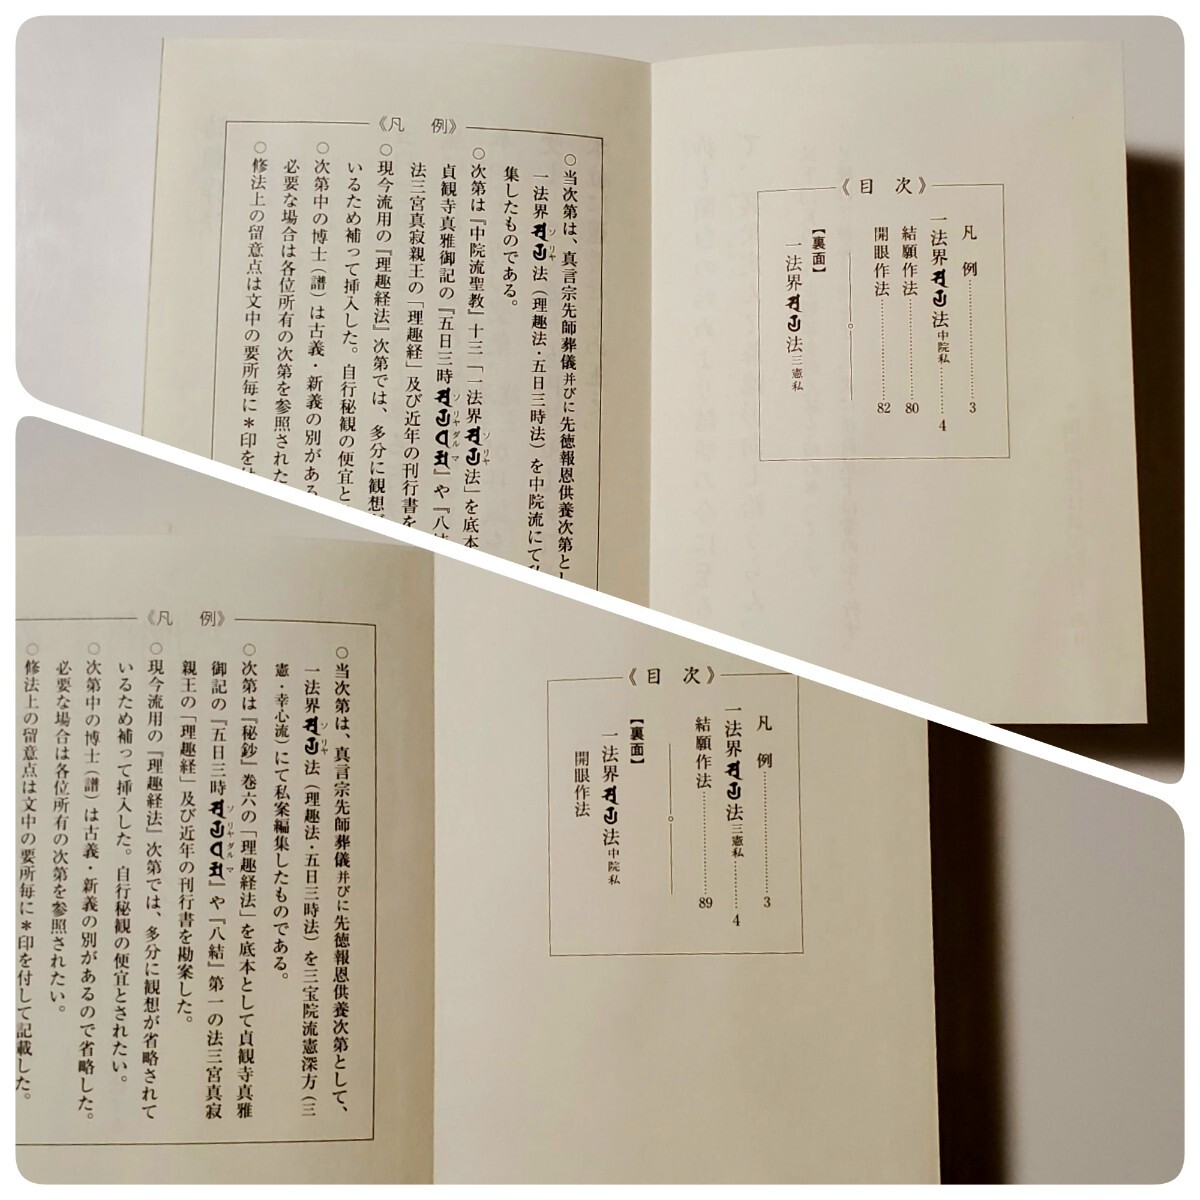 《目次》
凡例………3
一法界法中院私………4
結願作法………80
開眼作法………82
【裏面】
一法界法三憲私
《凡例》
○当次第は、真言宗先師葬儀并びに先徳報恩供養次第とし
一法界ソリヤ法(理趣法・五日三時法)を中院流にて私
集したものである。
○次第は『中院流聖教』十三「一法界ソリヤ法」を底本
貞観寺真雅御記の『五日三時ソリヤダルマ』や『八結
法三宮真寂親王の「理趣経」及び近年の刊行書を
○現今流用の『理趣経法』次第では、多分に観想が
いるため補って挿入した。自行秘観の便宜と
○次第中の博士(譜)は古義・新義の別がある
必要な場合は各位所有の次第を参照された
○修法上の留意点は文中の要所毎に＊印を付
《目次》
凡例………3
一法界法三憲私………4
結願作法………89
【裏面】
一法界法中院私
開眼作法
《凡例》
○当次第は、真言宗先師葬儀并びに先徳報恩供養次第として、
一法界ソリヤ法(理趣法・五日三時法)を三宝院流憲深方(三
憲・幸心流)にて私案編集したものである。
○次第は『秘鈔』巻六の「理趣経法」を底本として貞観寺真雅
御記の『五日三時ソリヤダルマ』や『八結』第一の法三宮真寂
親王の「理趣経」及び近年の刊行書を勘案した。
○現今流用の『理趣経法』次第では、多分に観想が省略されて
いるため補って挿入した。自行秘観の便宜とされたい。
○次第中の博士(譜)は古義・新義の別があるので省略した。
必要な場合は各位所有の次第を参照されたい。
○修法上の留意点は文中の要所毎に＊印を付して記載した。